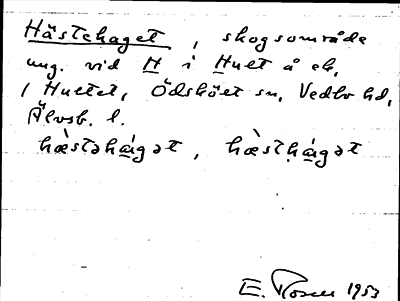 Hästehaget, skogsområde
ung. vid H i Hult å ek,
/ Hultet, Ödsköt sn, Vedbo hd,
Älvsb. l.
hæ̀stəhágət, hæ̀sthágət
E. Rosen 1953